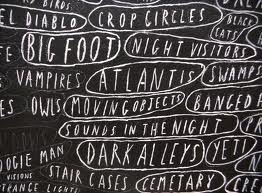 BIRDS
EL DIABLO CROP CIRCLES BLACK CATS
BIG FOOT NIGHT VISITORS
VAMPIRES ATLANTIS SWAMPS
ES OWLS MOVING OBJECTS BANGED
SOUNDS IN THE NIGHT
OGIE MAN DARK ALLEYS YETI
VISIONS STAIR CASES CEMETARY CRE
STRANGE LIGHTS